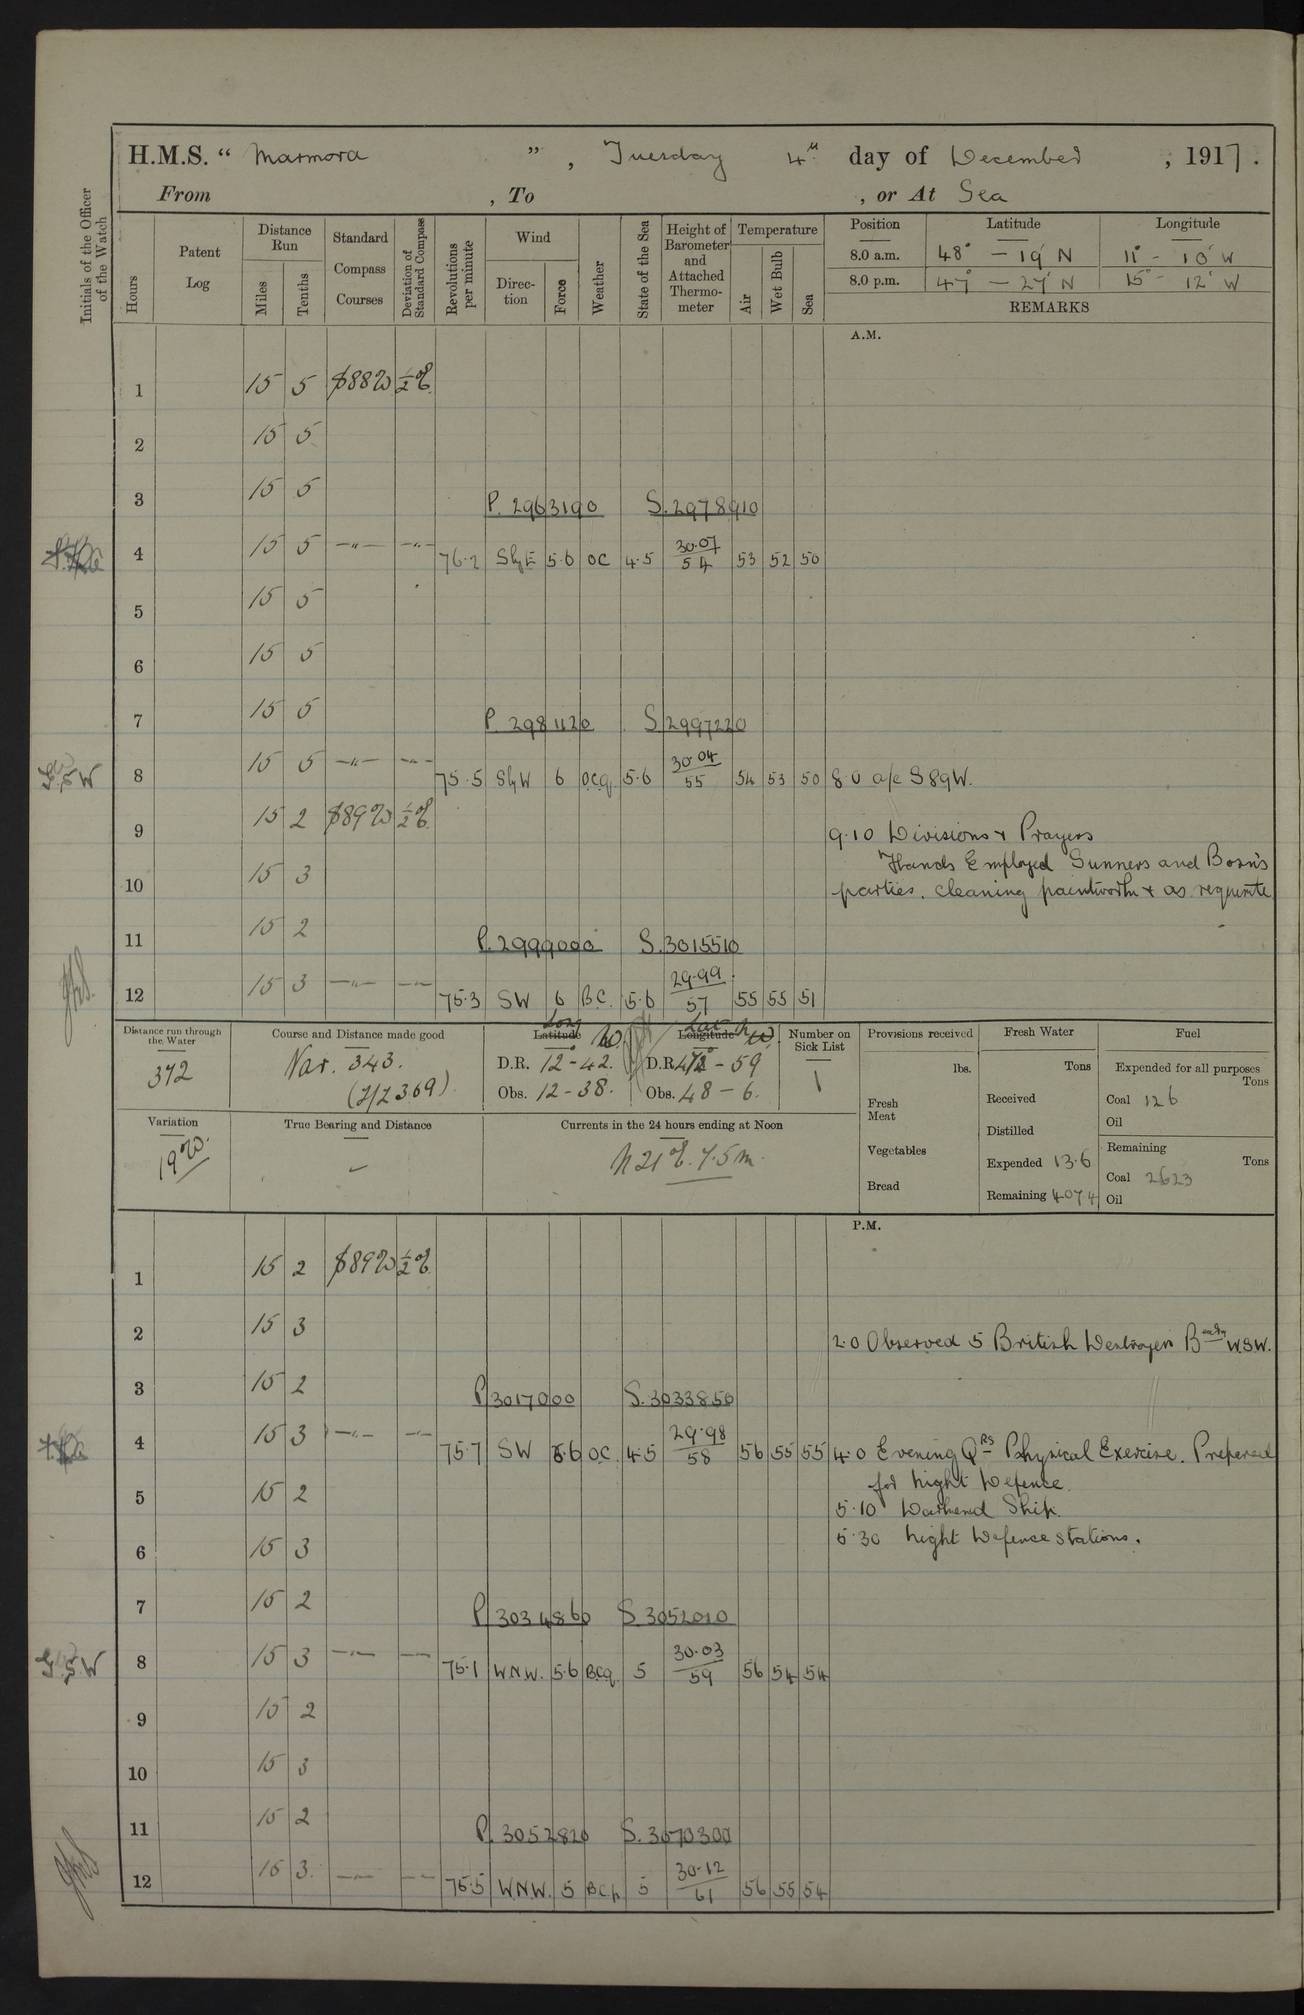 H.M.S. “ Marmora ” , Tuesday 4th day of December , 1917 .
From , To , or At Sea
Initials of the Officer of the Watch
Hours
Patent Log
Distance Run
Miles
Tenths
Standard Compass Courses
Deviation of Standard Compass
Revolutions per minute
Wind
Direction
Force
Weather
State of the Sea
Height of Barometer and Attached Thermometer
Temperature
Air
Wet Bulb
Sea
Position Latitude Longitude
8.0 a.m. 48° - 19' N 11° - 10' W
8.0 p.m. 47° - 27' N 15° - 12' W
REMARKS
A.M.
1 15 5 S88W ½E
2 15 5
3 15 5 P. 2963190 S. 2978910
4 15 5 -"- -"- 76.2 SbyE 5.6 OC 4.5 30.07/54 53 52 50
5 15 5
6 15 5
7 15 5 P. 2981120 S. 2997220
G.S.W 8 15 5 -"- -"- 75.5 SbyW 6 ocq 5.6 30.04/55 54 53 50 8.0 a/c S89W.
9 15 2 S89W ½E 9.10 Divisions + Prayers
Hands Employed Gunners and Bosn's
10 15 3 parties. cleaning paintwork + as requisite
11 15 2 P. 2999000 S. 3015510
12 15 3 -"- -"- 75.3 SW 6 B.C. 5.6 29.99/57 55 55 51
Distance run through the Water
372
Course and Distance made good
Var. 343.
Long Latitude W
D.R. 12° - 42.
Obs. 12 - 38.
Lat Longitude
D.R. 47° - 59
Obs. 48 - 6.
Number on Sick List
1
Provisions received
lbs.
Fresh Meat
Vegetables
Bread
Fresh Water
Tons
Received
Distilled
Expended 13.6
Remaining 4074
Fuel
Expended for all purposes
Tons
Coal 126
Oil
Remaining
Tons
Coal 2623
Oil
Variation
19W.
True Bearing and Distance
-
Currents in the 24 hours ending at Noon
N21E. 7.5m.
P.M.
1 15 2 S89W ½E
2 15 3 2.0 Observed 5 British Destroyers B W.S.W.
3 15 2 P. 3017000 S. 3033850
4 15 3 -"- -"- 75.7 SW 5.6 O.C. 4.5 29.98/58 56 55 55 4.0 Evening Qrs Physical Exercise. Prepared
for night Defence.
5 15 2 5.10 Darkened Ship.
6 15 3 5.30 night Defence stations.
7 15 2 P. 3034860 S. 3052010
G.S.W 8 15 3 -"- -"- 75.1 W.N.W. 5.6 B.c.q. 5 30.03/59 56 54 54
9 15 2
10 15 3
11 15 2 P. 3052820 S. 3070300
12 15 3. -"- -"- 75.5 W.N.W. 5 B.C.p 5 30.12/61 56 55 54